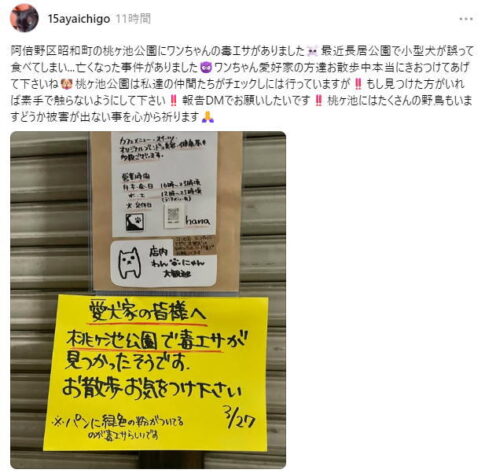 15ayaichigo 11時間
阿倍野区昭和町の桃ヶ池公園にワンちゃんの毒エサがありました☠️ 最近長居公園で小型犬が誤って
食べてしまい...亡くなった事件がありました👿ワンちゃん愛好家の方達お散歩中本当にきおつけてあげ
て下さいね🐶 桃ヶ池公園は私達の仲間たちがチェックしには行っていますが‼️もし見つけた方がいれ
ば素手で触らないようにして下さい‼️ 報告DMでお願いしたいです‼️桃ヶ池にはたくさんの野鳥もいま
すどうか被害が出ない事を心から祈ります🙏
営業時間
hana
店内
わん・にゃん
大歓迎
愛犬家の皆様へ
桃ヶ池公園で毒エサが
見つかったそうです.
お散歩お気をつけ下さい
※パンに緑色の粉がついてる
のが毒エサらしいです
3/27